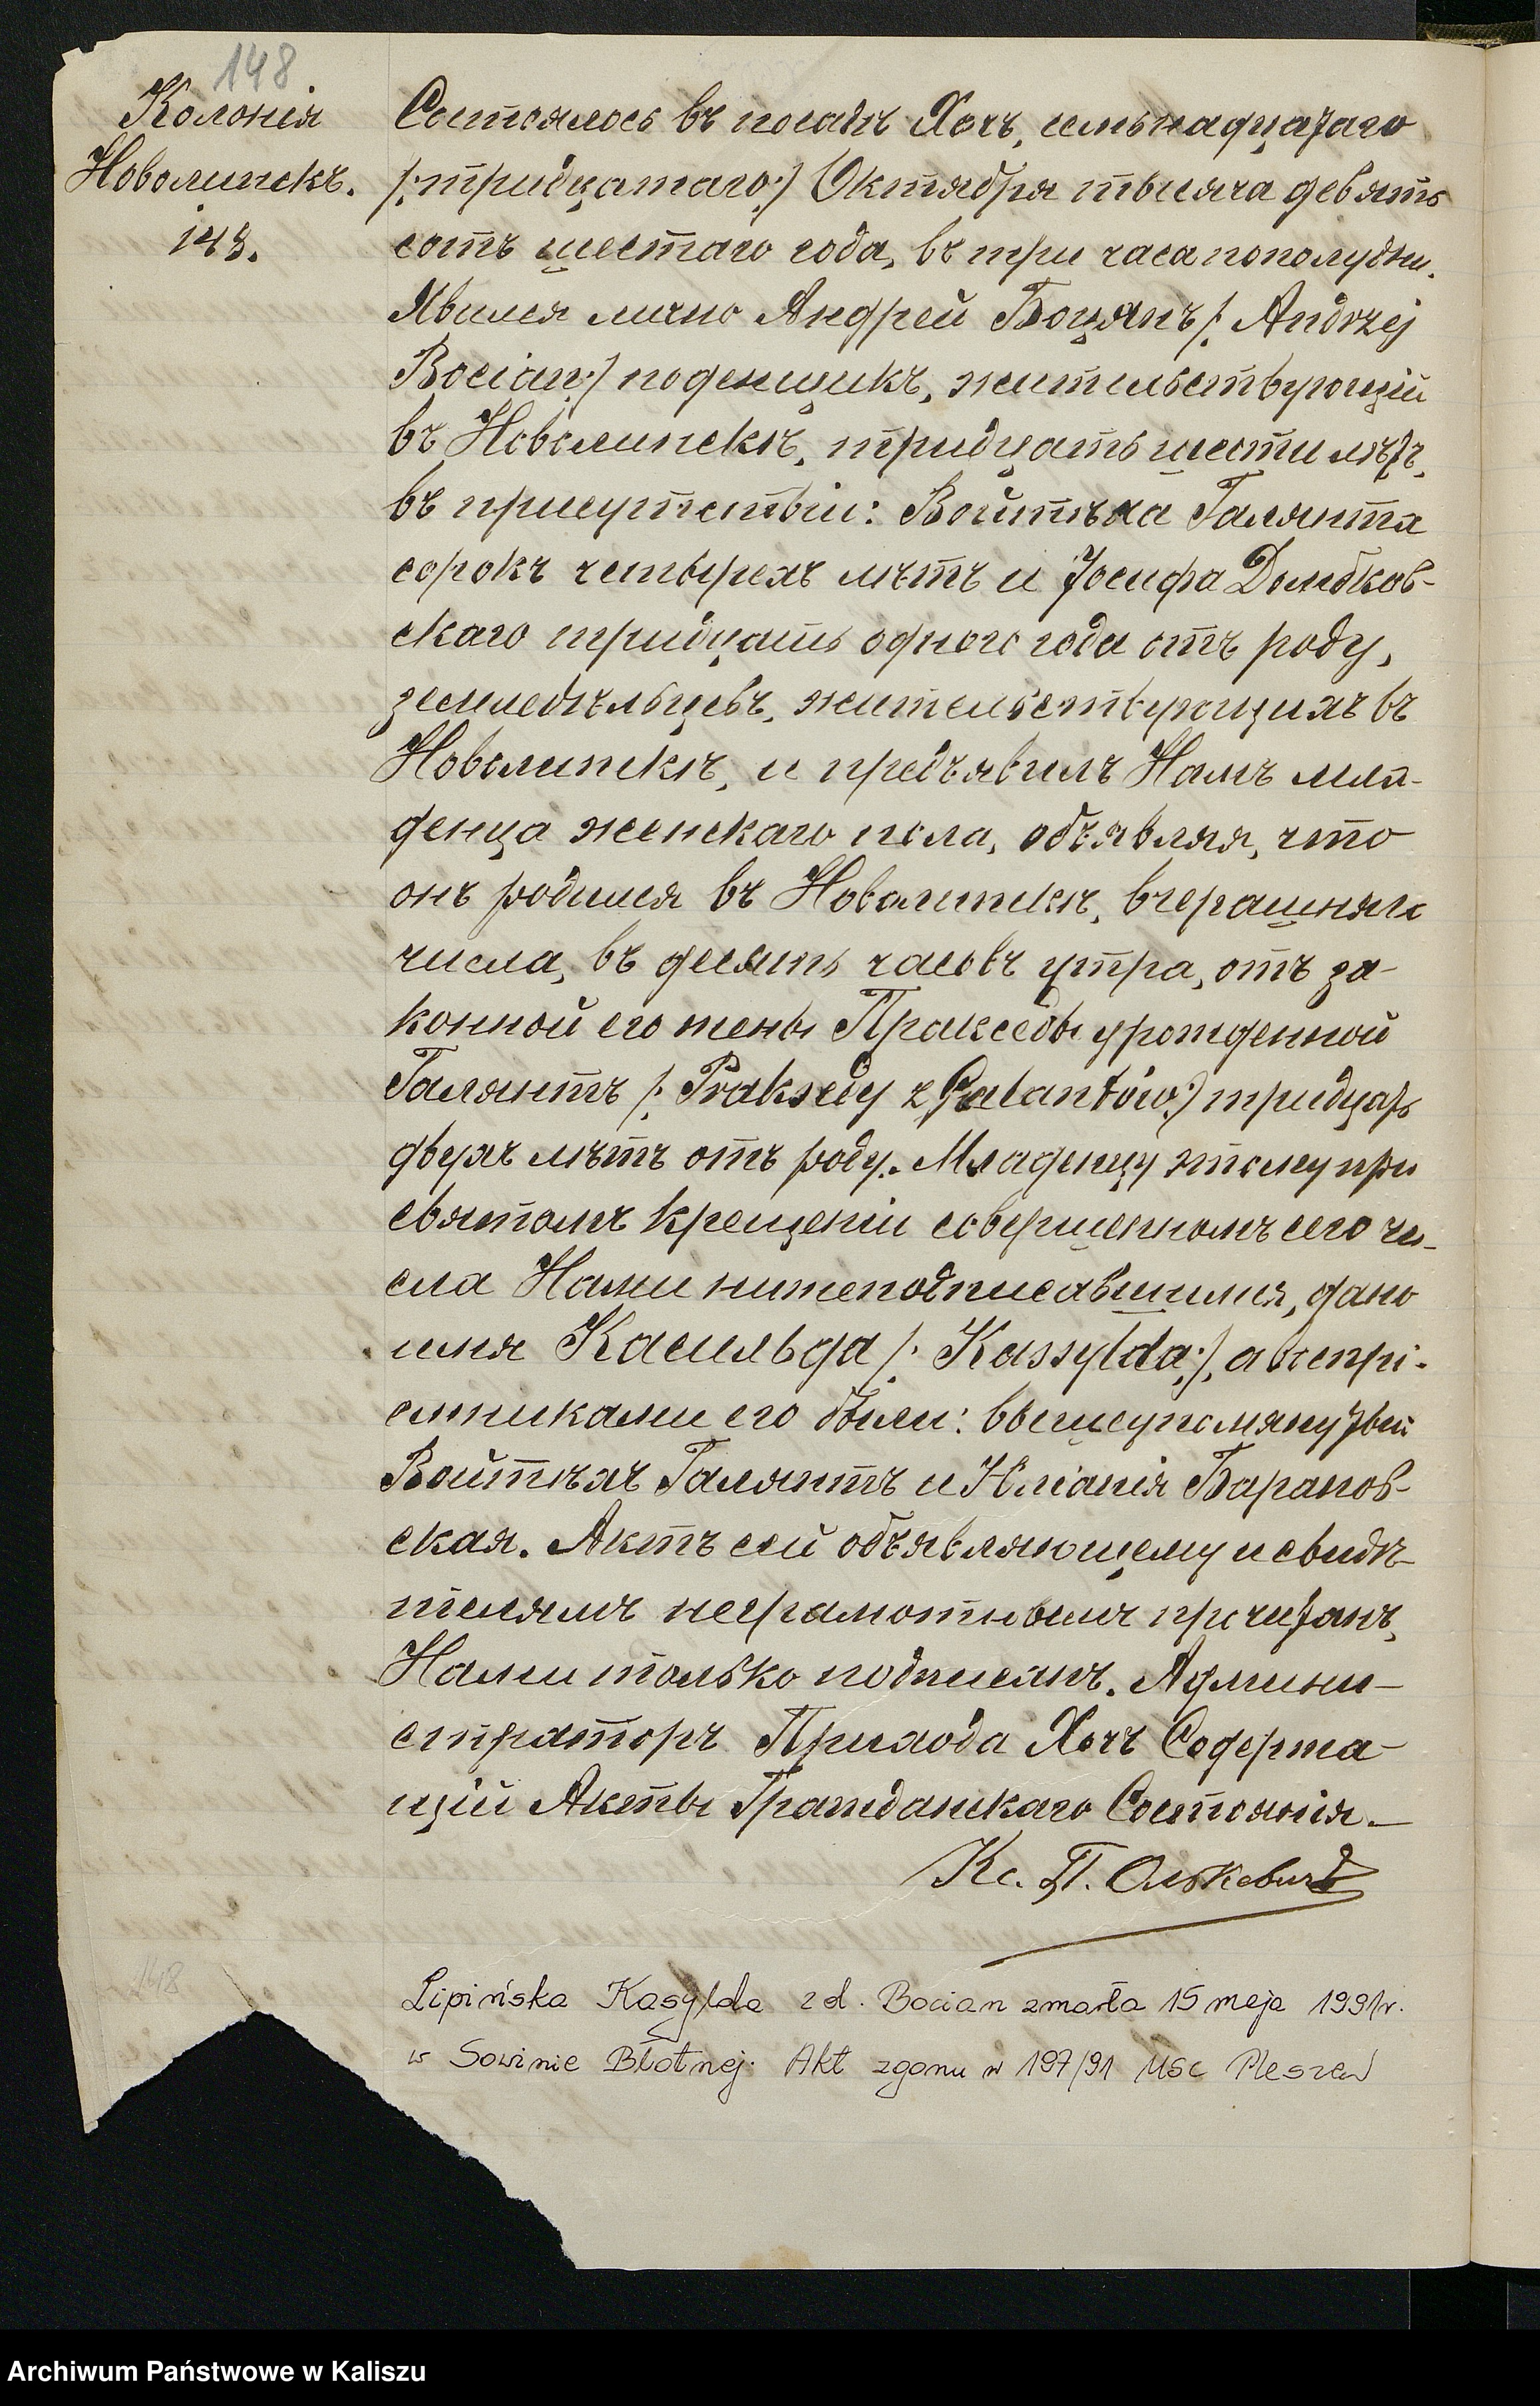 148
Колонія
Новолипскъ.
148.
Состоялось въ посадѣ Хочъ, семьнадцатаго
/:тридцатаго:/ Октября тысяча девять
сотъ шестаго года, въ три часа пополудни.
Явился лично Андрей Боцянъ /: Andrzej
Bocian:/ поденщикъ, жительствующій
въ Новолипскѣ, тридцать шести лѣтъ,
въ присутствіи: Войтѣха Галянта
сорокъ четырехъ лѣтъ и Іосифа Домбков-
скаго тридцать одного года отъ роду,
земледѣльцевъ, жительствующихъ въ
Новолипскѣ, и предъявилъ Намъ мла-
денца женскаго пола, объявляя, что
онъ родился въ Новолипскѣ, вчерашняго
числа, въ десять часовъ утра, отъ за-
конной его жены Пракседы урожденной
Галянтъ /: Praksedy z Galantów:/ тридцать
двухъ лѣтъ отъ роду. Младенцу этому при
святомъ крещеніи совершенномъ сего чи-
сла Нами нижеподписавшимся, дано
имя Касильда /: Kassylda:/, а воспрі-
емниками его были: вышеупомянутый
Войтѣхъ Галянтъ и Юліанія Баранов-
ская. Актъ сей объявляющему и свидѣ-
телямъ неграмотнымъ прочитанъ,
Нами только подписанъ. Админи-
страторъ Прихода Хочъ Содержа-
щій Акты Гражданскаго Состоянія.—
Кс. П. Олькевичъ
Lipińska Kasylda z d. Bocian zmarła 15 maja 1991r.
w Sowinie Błotnej. Akt zgonu nr 197/91 USC Pleszew
148
Archiwum Państwowe w Kaliszu